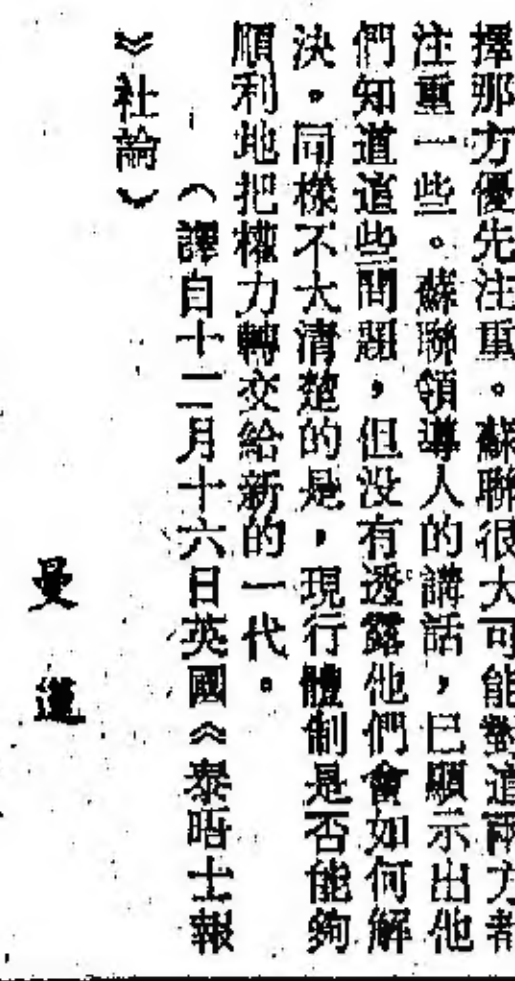 擇那方優先注重。蘇聯很大可能對這兩方都
注重一些。蘇聯領導人的講話，已顯示出他
們知道這些問題，但没有透露他們會如何解
決。同樣不大清楚的是，現行體制是否能夠
順利地把權力轉交給新的一代。
（譯自十二月十六日英國《泰晤士報
》社論）
曼